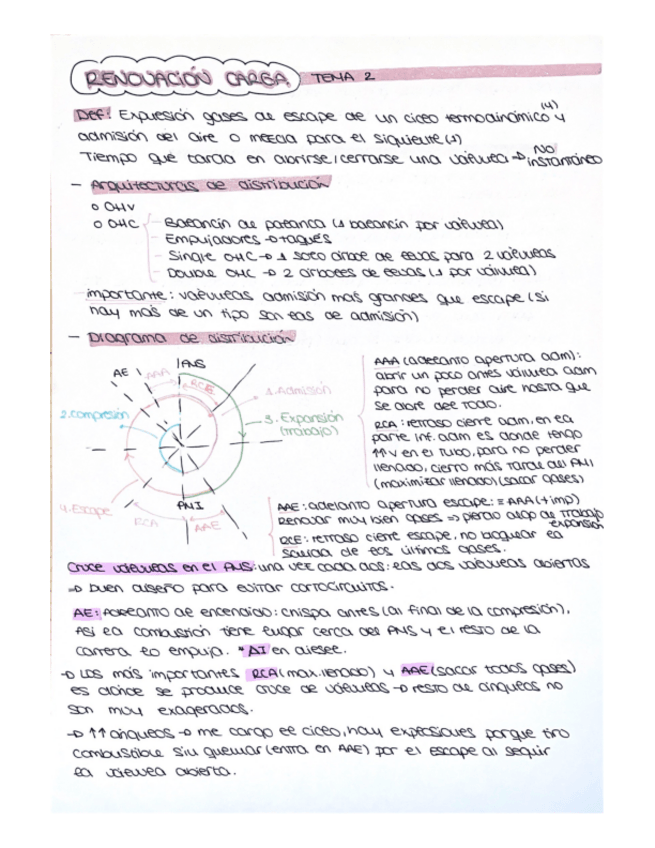 RENOVACIÓN CARGA TEMA 2
Def: Expulsión gases de escape de un ciclo termodinámico (4) y
admisión del aire o mezcla para el siguiente (1)
Tiempo que tarda en abrirse/cerrarse una válvula → NO instantáneo
- Arquitecturas de distribución
o OHV
o OHC - Balancín de palanca (1 balancín por válvula)
- Empujadores → taqués
- Single OHC → 1 solo árbol de levas para 2 válvulas
- Double OHC → 2 árboles de levas (1 por válvula)
importante: válvulas admisión más grandes que escape (si
hay más de un tipo son las de admisión)
- Diagrama de distribución
AE
AAA
PMS
RCE
1. Admisión
2. Compresión
3. Expansión
(trabajo)
4. Escape
PMI
RCA
AAE
AAA (adelanto apertura adm):
abrir un poco antes válvula adm
para no perder aire hasta que
se abre del todo.
RCA: retraso cierre adm, en la
parte inf. adm es donde tengo
↑↑v en el tubo, para no perder
llenado, cierro más tarde del PMI
(maximizar llenado) (sacar gases)
AAE: adelanto apertura escape: ≡ AAA (+imp)
Renovar muy bien gases ⇒ pierdo algo de trabajo
expansión
RCE: retraso cierre escape, no bloquear la
salida de los últimos gases.
Cruce válvulas en el PMS: una vez cada dos: las dos válvulas abiertas
→ buen diseño para evitar cortocircuitos.
AE: Adelanto de encendido: chispa antes (al final de la compresión),
Así la combustión tiene lugar cerca del PMS y el resto de la
carrera lo empuja. * AI en diesel.
→ Los más importantes RCA (max. llenado) y AAE (sacar todos gases)
es donde se produce cruce de válvulas → resto de ángulos no
son muy exagerados.
→ ↑↑ ángulos → me cargo el ciclo, hay explosiones porque tiro
combustible sin quemar (entra en AAE) por el escape al seguir
la válvula abierta.